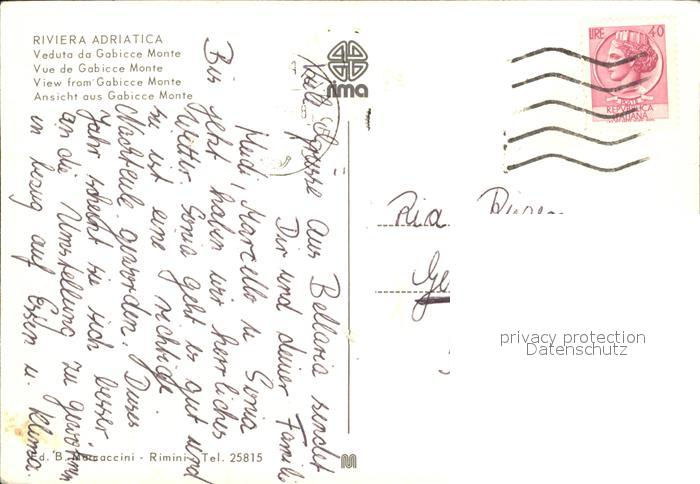 RIVIERA ADRIATICA
Veduta da Gabicce Monte
Vue de Gabicce Monte
View from Gabicce Monte
Ansicht aus Gabicce Monte
rima
LIRE 40
POSTE
REPVBBLICA
ITALIANA
Viele Grüsse aus Bellaria sendet
Dir und deiner Familie
Mudi, Marcello u Sonia
Bis jetzt haben wir herrliches
Wetter. Sonia geht es gut und
sie ist eine richtige
Nachteule geworden. Dieses
Jahr scheint sie sich besser
an die Umstellung zu gewöhnen
in bezug auf Essen u. Klima.
Ria
Ge
privacy protection
Datenschutz
Ed. B. Marcaccini - Rimini - Tel. 25815